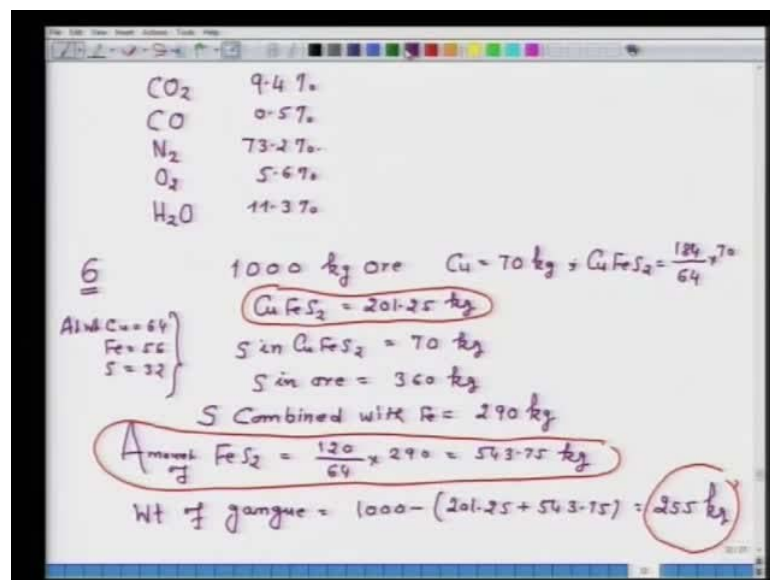 File Edit View Insert Actions Tools Help
CO₂ 9.4 %
CO 0.5 %
N₂ 73.2 %
O₂ 5.6 %
H₂O 11.3 %
6 1000 kg ore Cu = 70 kg ; CuFeS₂ = 184/64 × 70
CuFeS₂ = 201.25 kg
At wt Cu = 64
Fe = 56
S = 32
S in CuFeS₂ = 70 kg
S in ore = 360 kg
S Combined with Fe = 290 kg
Amount of FeS₂ = 120/64 × 290 = 543.75 kg
Wt of gangue = 1000 - (201.25 + 543.75) = 255 kg